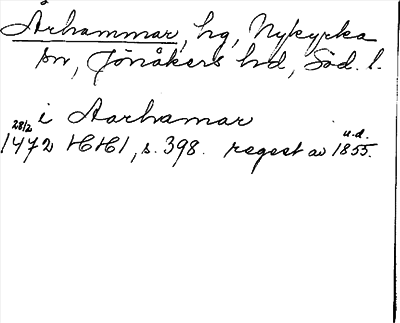 Århammar, hg, Nykyrka
sn, Jönåkers hd, Söd. l.
i Aarhamar
28/2 1472 HH1, s. 398. regest av u.d. 1855.